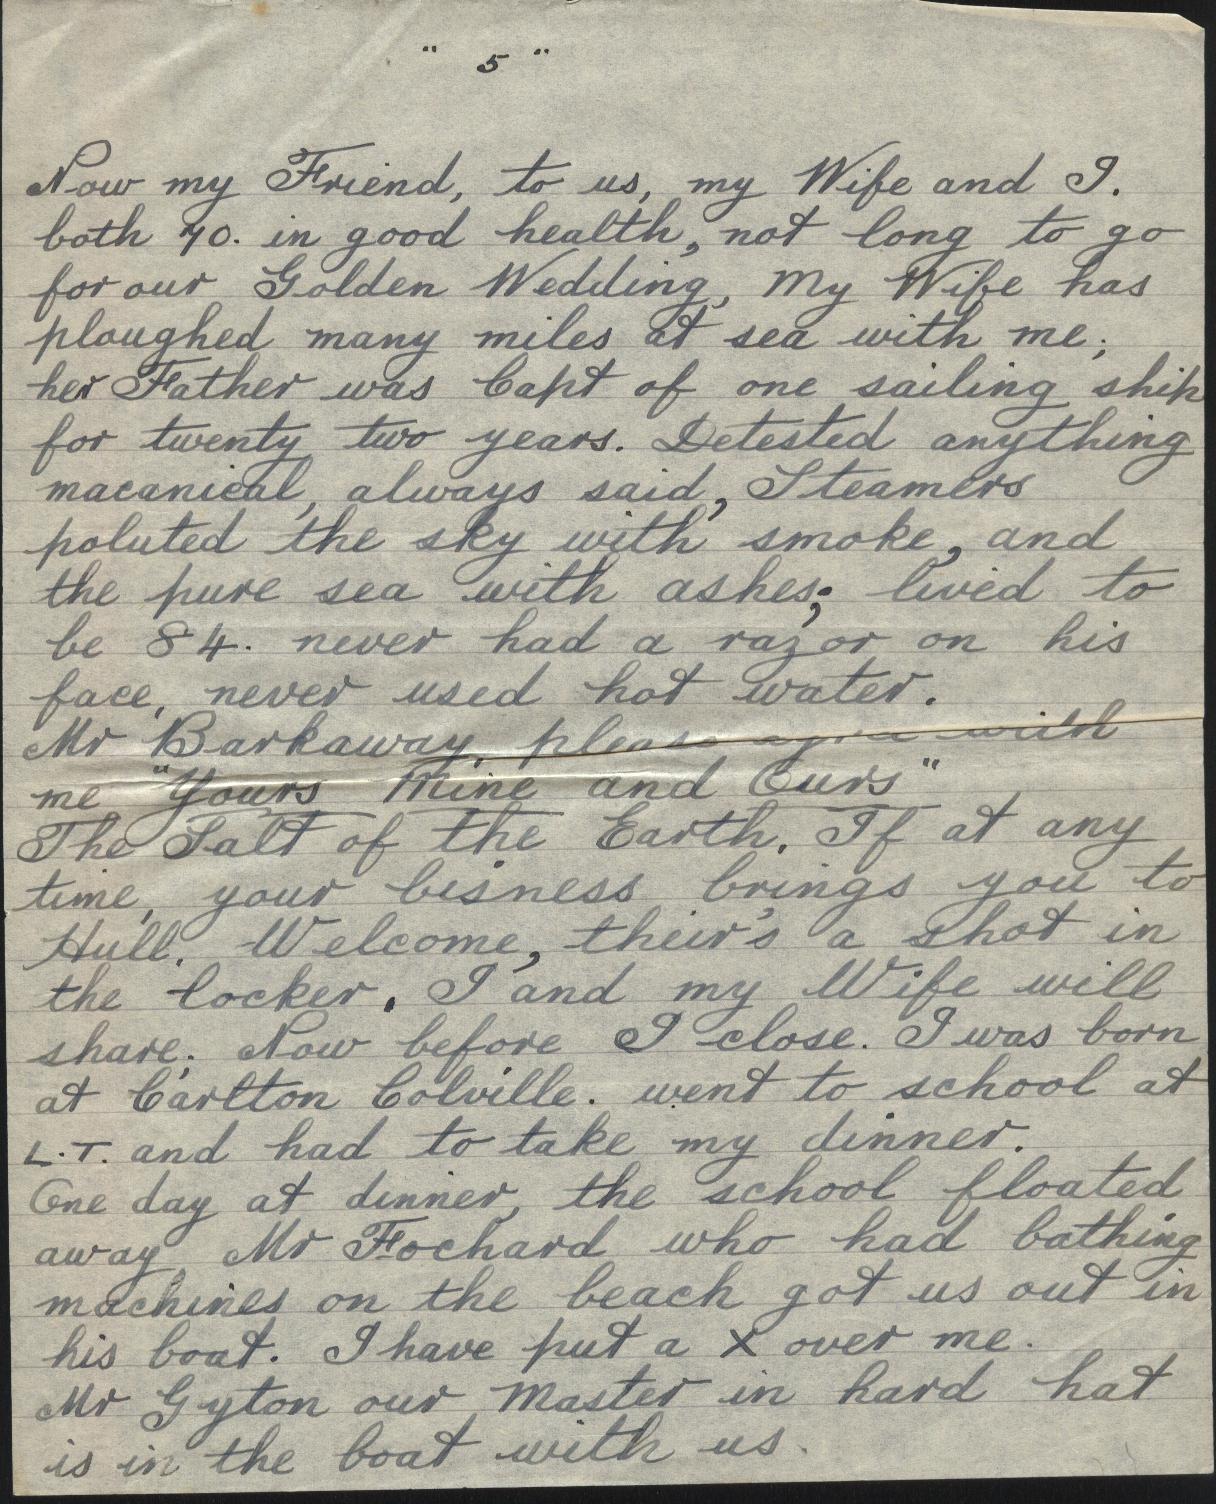 " 5 "
Now my Friend, to us, my Wife and I.
both 70. in good health, not long to go
for our Golden Wedding, My Wife has
ploughed many miles at sea with me;
her Father was Capt of one sailing ship
for twenty two years. Detested anything
macanical, always said, Steamers
poluted the sky with smoke, and
the pure sea with ashes; lived to
be 84. never had a razor on his
face, never used hot water.
Mr Barkaway, please agree with
me "Yours Mine and Ours"
The Salt of the Earth. If at any
time, your bisness brings you to
Hull. Welcome, their's a shot in
the locker. I and my Wife will
share; Now before I close. I was born
at Carlton Colville. went to school at
L.T. and had to take my dinner.
One day at dinner, the school floated
away, Mr Fochard who had bathing
machines on the beach got us out in
his boat. I have put a X over me.
Mr Gyton our Master in hard hat
is in the boat with us.